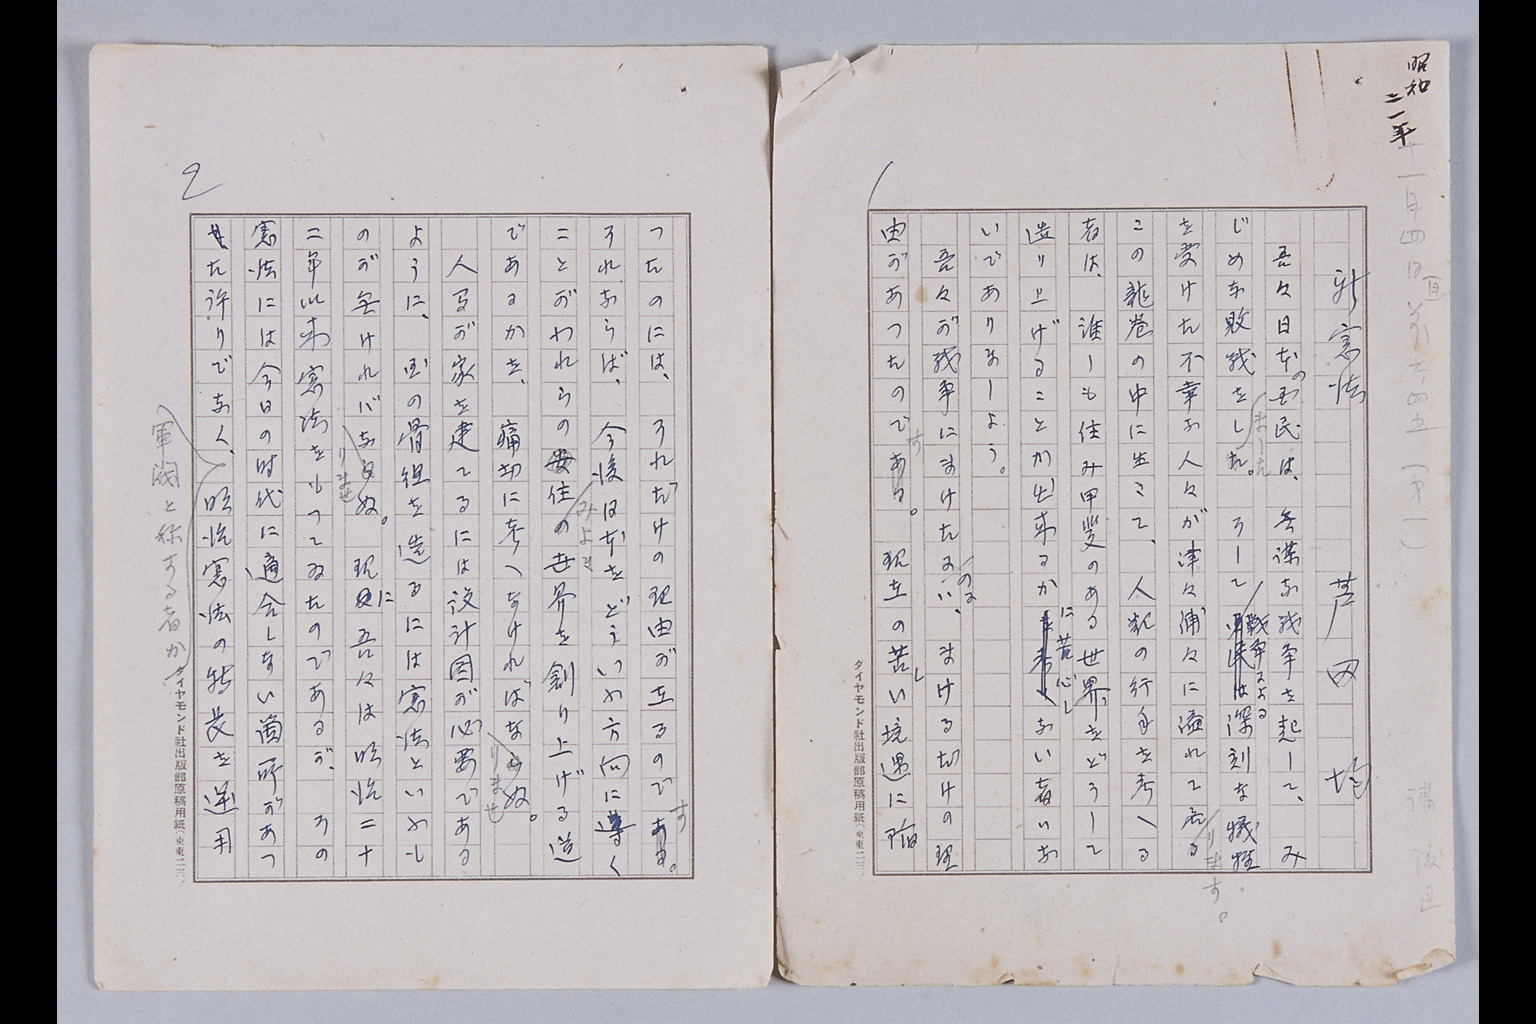 昭和
二一年
十一月四日
1
新憲法 芦田 均
吾々日本の国民は、無謀な戦争を起して、み
じめな敗戦をしました。そして戦争による深刻な犠牲
を受けた不幸な人々が津々浦々に溢れて居ります。
この龍巻の中に生きて、人類の行手を考へる
者は、誰しも住み甲斐のある世界をどうして
造り上げることが出来るかに苦心しない者はな
いでありましよう。
吾々が戦争にまけたのは、まけるだけの理
由があつたのです。現在の苦しい境遇に陥
ダイヤモンド社出版部原稿用紙
2
つたのには、それだけの理由が在るのです。
それならば、今後日本をどういふ方向に導く
ことがわれらの住みよき世界を創り上げる道
であるかを、痛切に考へなければなりませぬ。
人間が家を建てるには設計図が必要である
ように、国の骨組を造るには憲法といふも
のが無ければなりませぬ。現に吾々は明治二十
二年以来憲法をもつてゐたのであるが、その
憲法には今日の時代に適合しない箇所があつ
た許りでなく、軍閥と称する者が明治憲法の特長を逆用
ダイヤモンド社出版部原稿用紙